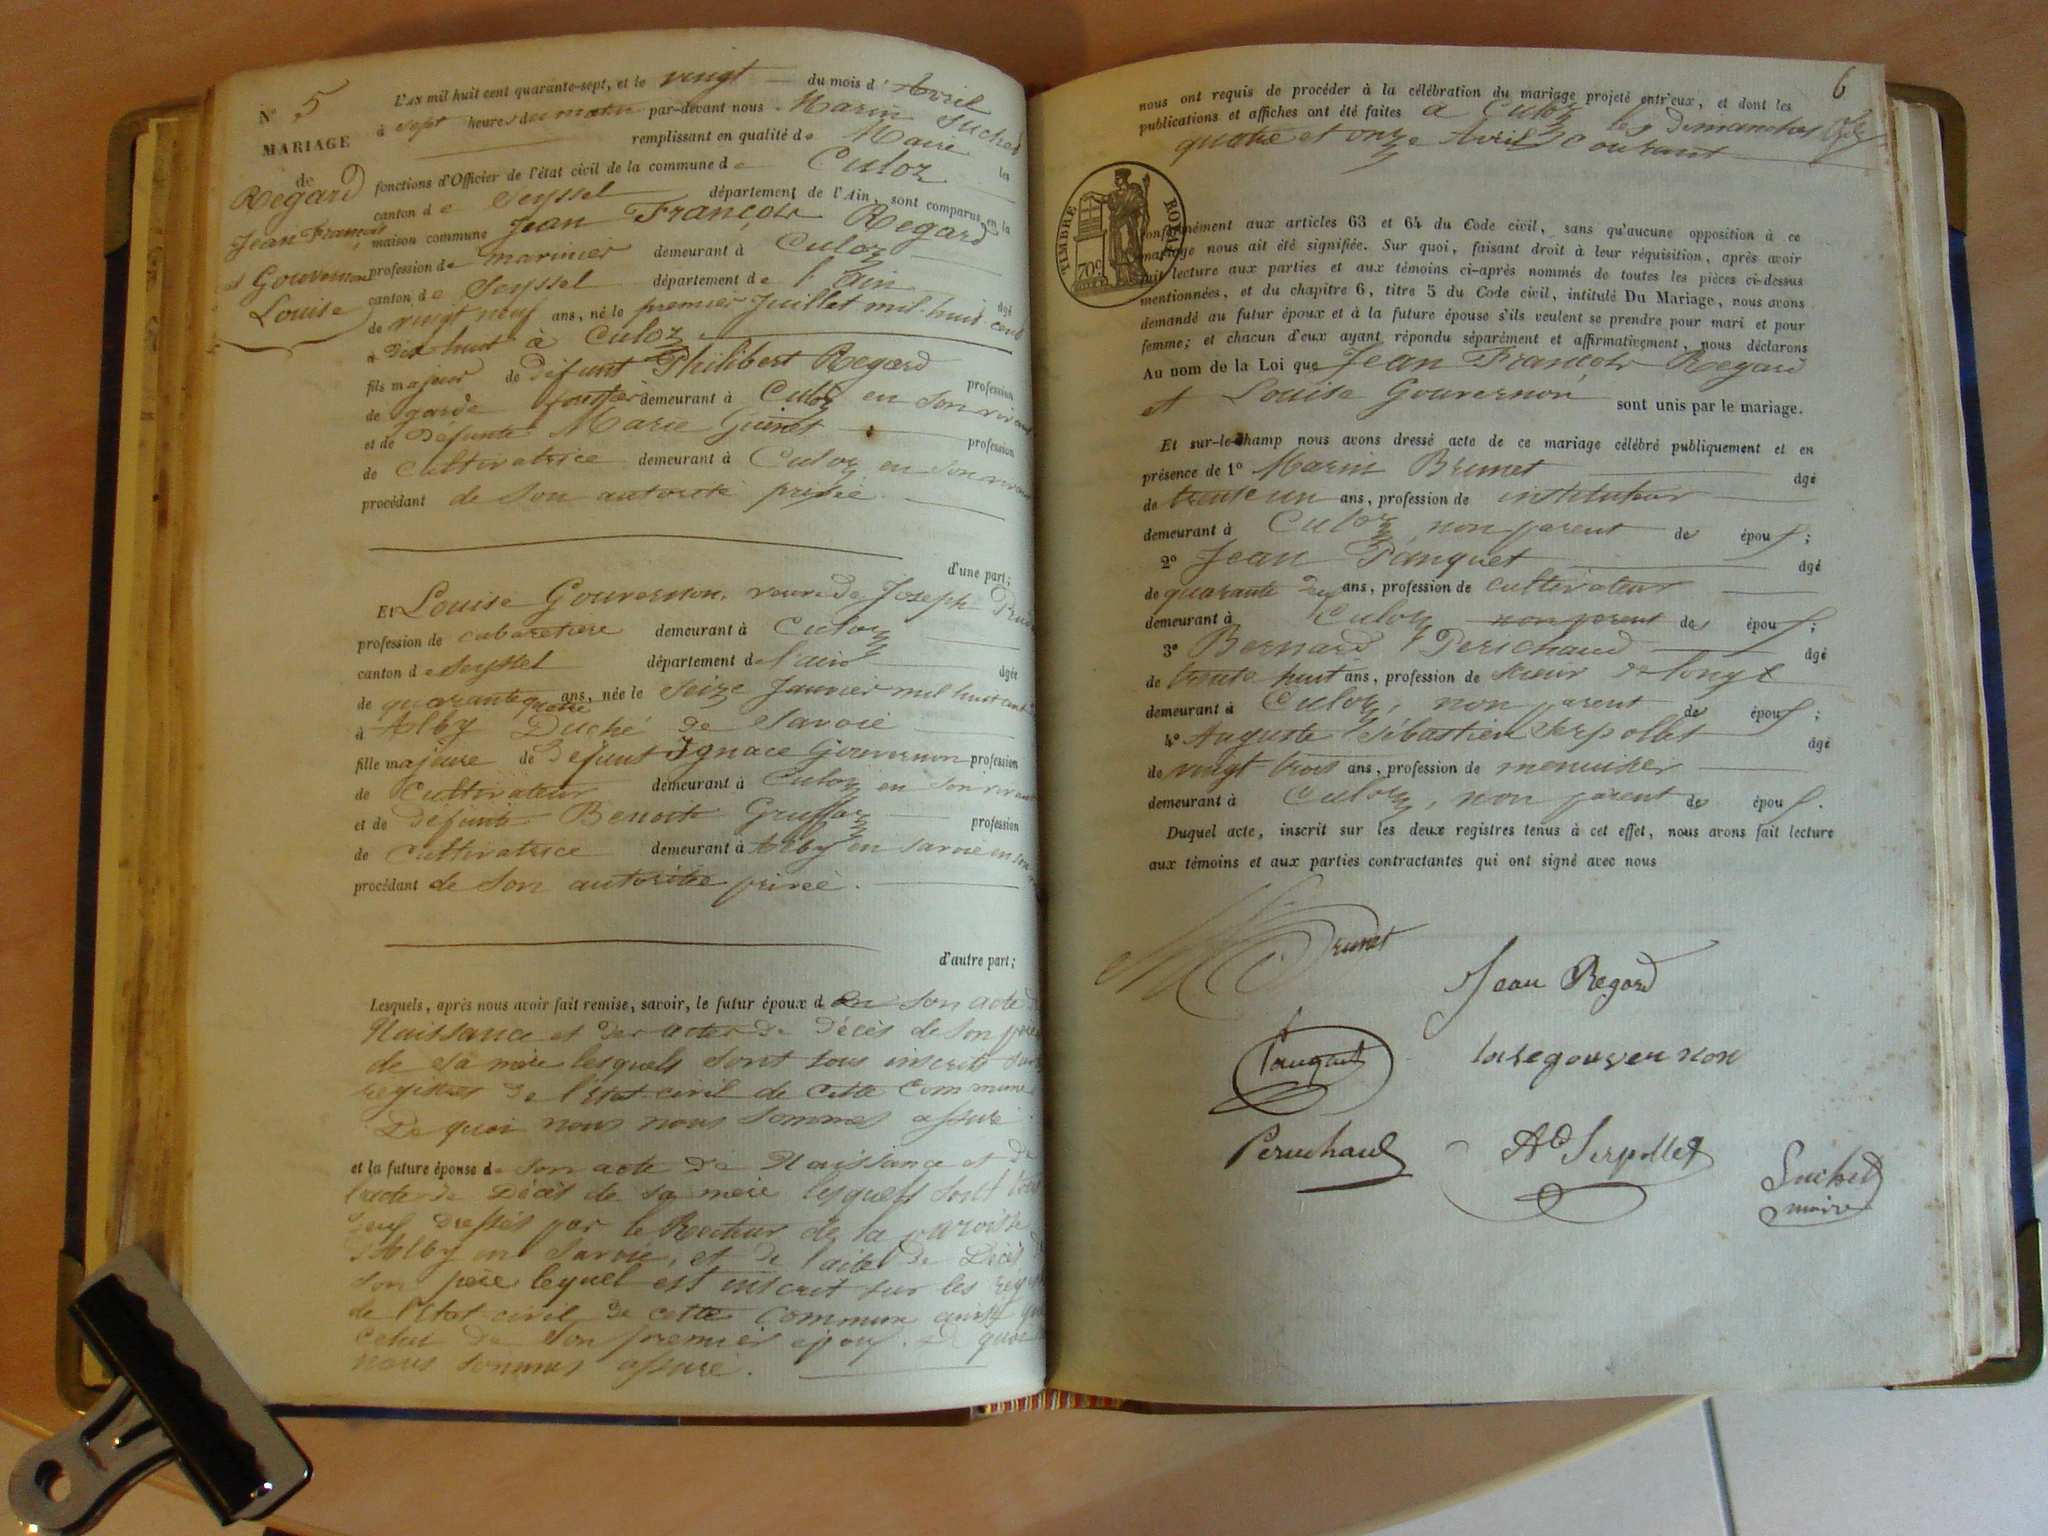 N° 5
MARIAGE
de
Regard
Jean François
et Gouvernon
Louise
L'AN mil huit cent quarante-sept, et le vingt du mois d'Avril
à sept heures du matin par-devant nous Marin Suchet
remplissant en qualité de Maire les
fonctions d'Officier de l'état civil de la commune de Culoz
canton de Seyssel département de l'Ain, sont comparus en la
maison commune Jean François Regard
profession de marinier demeurant à Culoz
canton de Seyssel département de l'Ain âgé
de vingt neuf ans, né le premier Juillet mil-huit-cent
dix huit à Culoz
fils majeur de défunt Philibert Regard profession
de garde demeurant à Culoz en son vivant
et de Défunte Marie Guinet profession
de cultivatrice demeurant à Culoz en son vivant
procédant de son autorité privée.
d'une part;
Et Louise Gouvernon, veuve de Joseph
profession de cabaretiere demeurant à Culoz
canton de Seyssel département de l'ain âgée
de quarante quatre ans, née le seize Janvier mil huit cent
à Alby Duché de Savoie
fille majeure de Défunt Ignace Gouvernon profession
de Cultivateur demeurant à Culoz en son vivant
et de défunte Benoite Gruffaz profession
de Cultivatrice demeurant à Alby en Savoie en son
procédant de son autorité privée.
d'autre part;
Lesquels, après nous avoir fait remise, savoir, le futur époux d son acte de
Naissance et des actes de décès de son père
de sa mère lesquels sont tous inscrits sur les
registres de l'état-civil de cette Commune
De quoi nous nous sommes assuré
et la future épouse de son acte de Naissance et de
l'acte de Décès de sa mère lesquels sont tous
deux dressés par le Recteur de la paroisse
d'Alby en Savoie, et de l'acte de Décès de
son père lequel est inscrit sur les
de l'état-civil de cette Commune ainsi que
celui de son premier époux. De quoi
nous sommes assuré.
6
nous ont requis de procéder à la célébration du mariage projeté entr'eux, et dont les
publications et affiches ont été faites à Culoz les Dimanches
quatre et onze Avril courant
TIMBRE ROYAL
70 c
conformément aux articles 63 et 64 du Code civil, sans qu'aucune opposition à ce
mariage nous ait été signifiée. Sur quoi, faisant droit à leur réquisition, après avoir
fait lecture aux parties et aux témoins ci-après nommés de toutes les pièces ci-dessus
mentionnées, et du chapitre 6, titre 5 du Code civil, intitulé Du Mariage, nous avons
demandé au futur époux et à la future épouse s'ils veulent se prendre pour mari et pour
femme; et chacun d'eux ayant répondu séparément et affirmativement, nous déclarons
Au nom de la Loi que Jean François Regard
et Louise Gouvernon sont unis par le mariage.
Et sur-le-champ nous avons dressé acte de ce mariage célébré publiquement et en
présence de 1° Marin Brunet âgé
de trente un ans, profession de instituteur
demeurant à Culoz non parent des époux;
2° Jean Panquet âgé
de quarante ans, profession de cultivateur
demeurant à Culoz non parent des époux;
3° Bernard Perichaud âgé
de trente huit ans, profession de scieur de long
demeurant à Culoz, non parent des époux;
4° Auguste Sébastien Serpollet âgé
de vingt-trois ans, profession de menuisier
demeurant à Culoz, non parent des époux.
Duquel acte, inscrit sur les deux registres tenus à cet effet, nous avons fait lecture
aux témoins et aux parties contractantes qui ont signé avec nous
Brunet
Jean Regard
Panquet
gouvernon
Peruchaud
Ad Serpollet
Suchet
maire